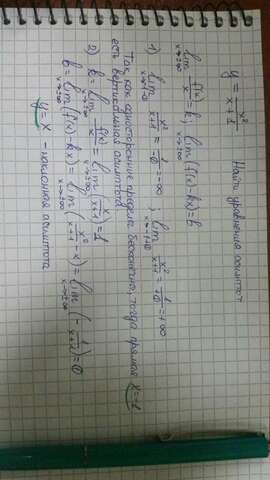 Найти уравнения асимптот
y = x²/(x+1)
lim x→±∞ f(x)/x = k; lim x→±∞ (f(x)-kx) = b
1) lim x→-1-0 x²/(x+1) = 1/-0 = -∞, lim x→-1+0 x²/(x+1) = 1/+0 = +∞
Так как односторонние пределы бесконечны, тогда прямая x=-1
есть вертикальная асимптота
2) k = lim x→±∞ f(x)/x = lim x→±∞ (x/(x+1)) = 1
b = lim x→±∞ (f(x)-kx) = lim x→±∞ (x²/(x+1) - x) = lim x→±∞ (-1/(x+1)) = 0
y=x - наклонная асимптота